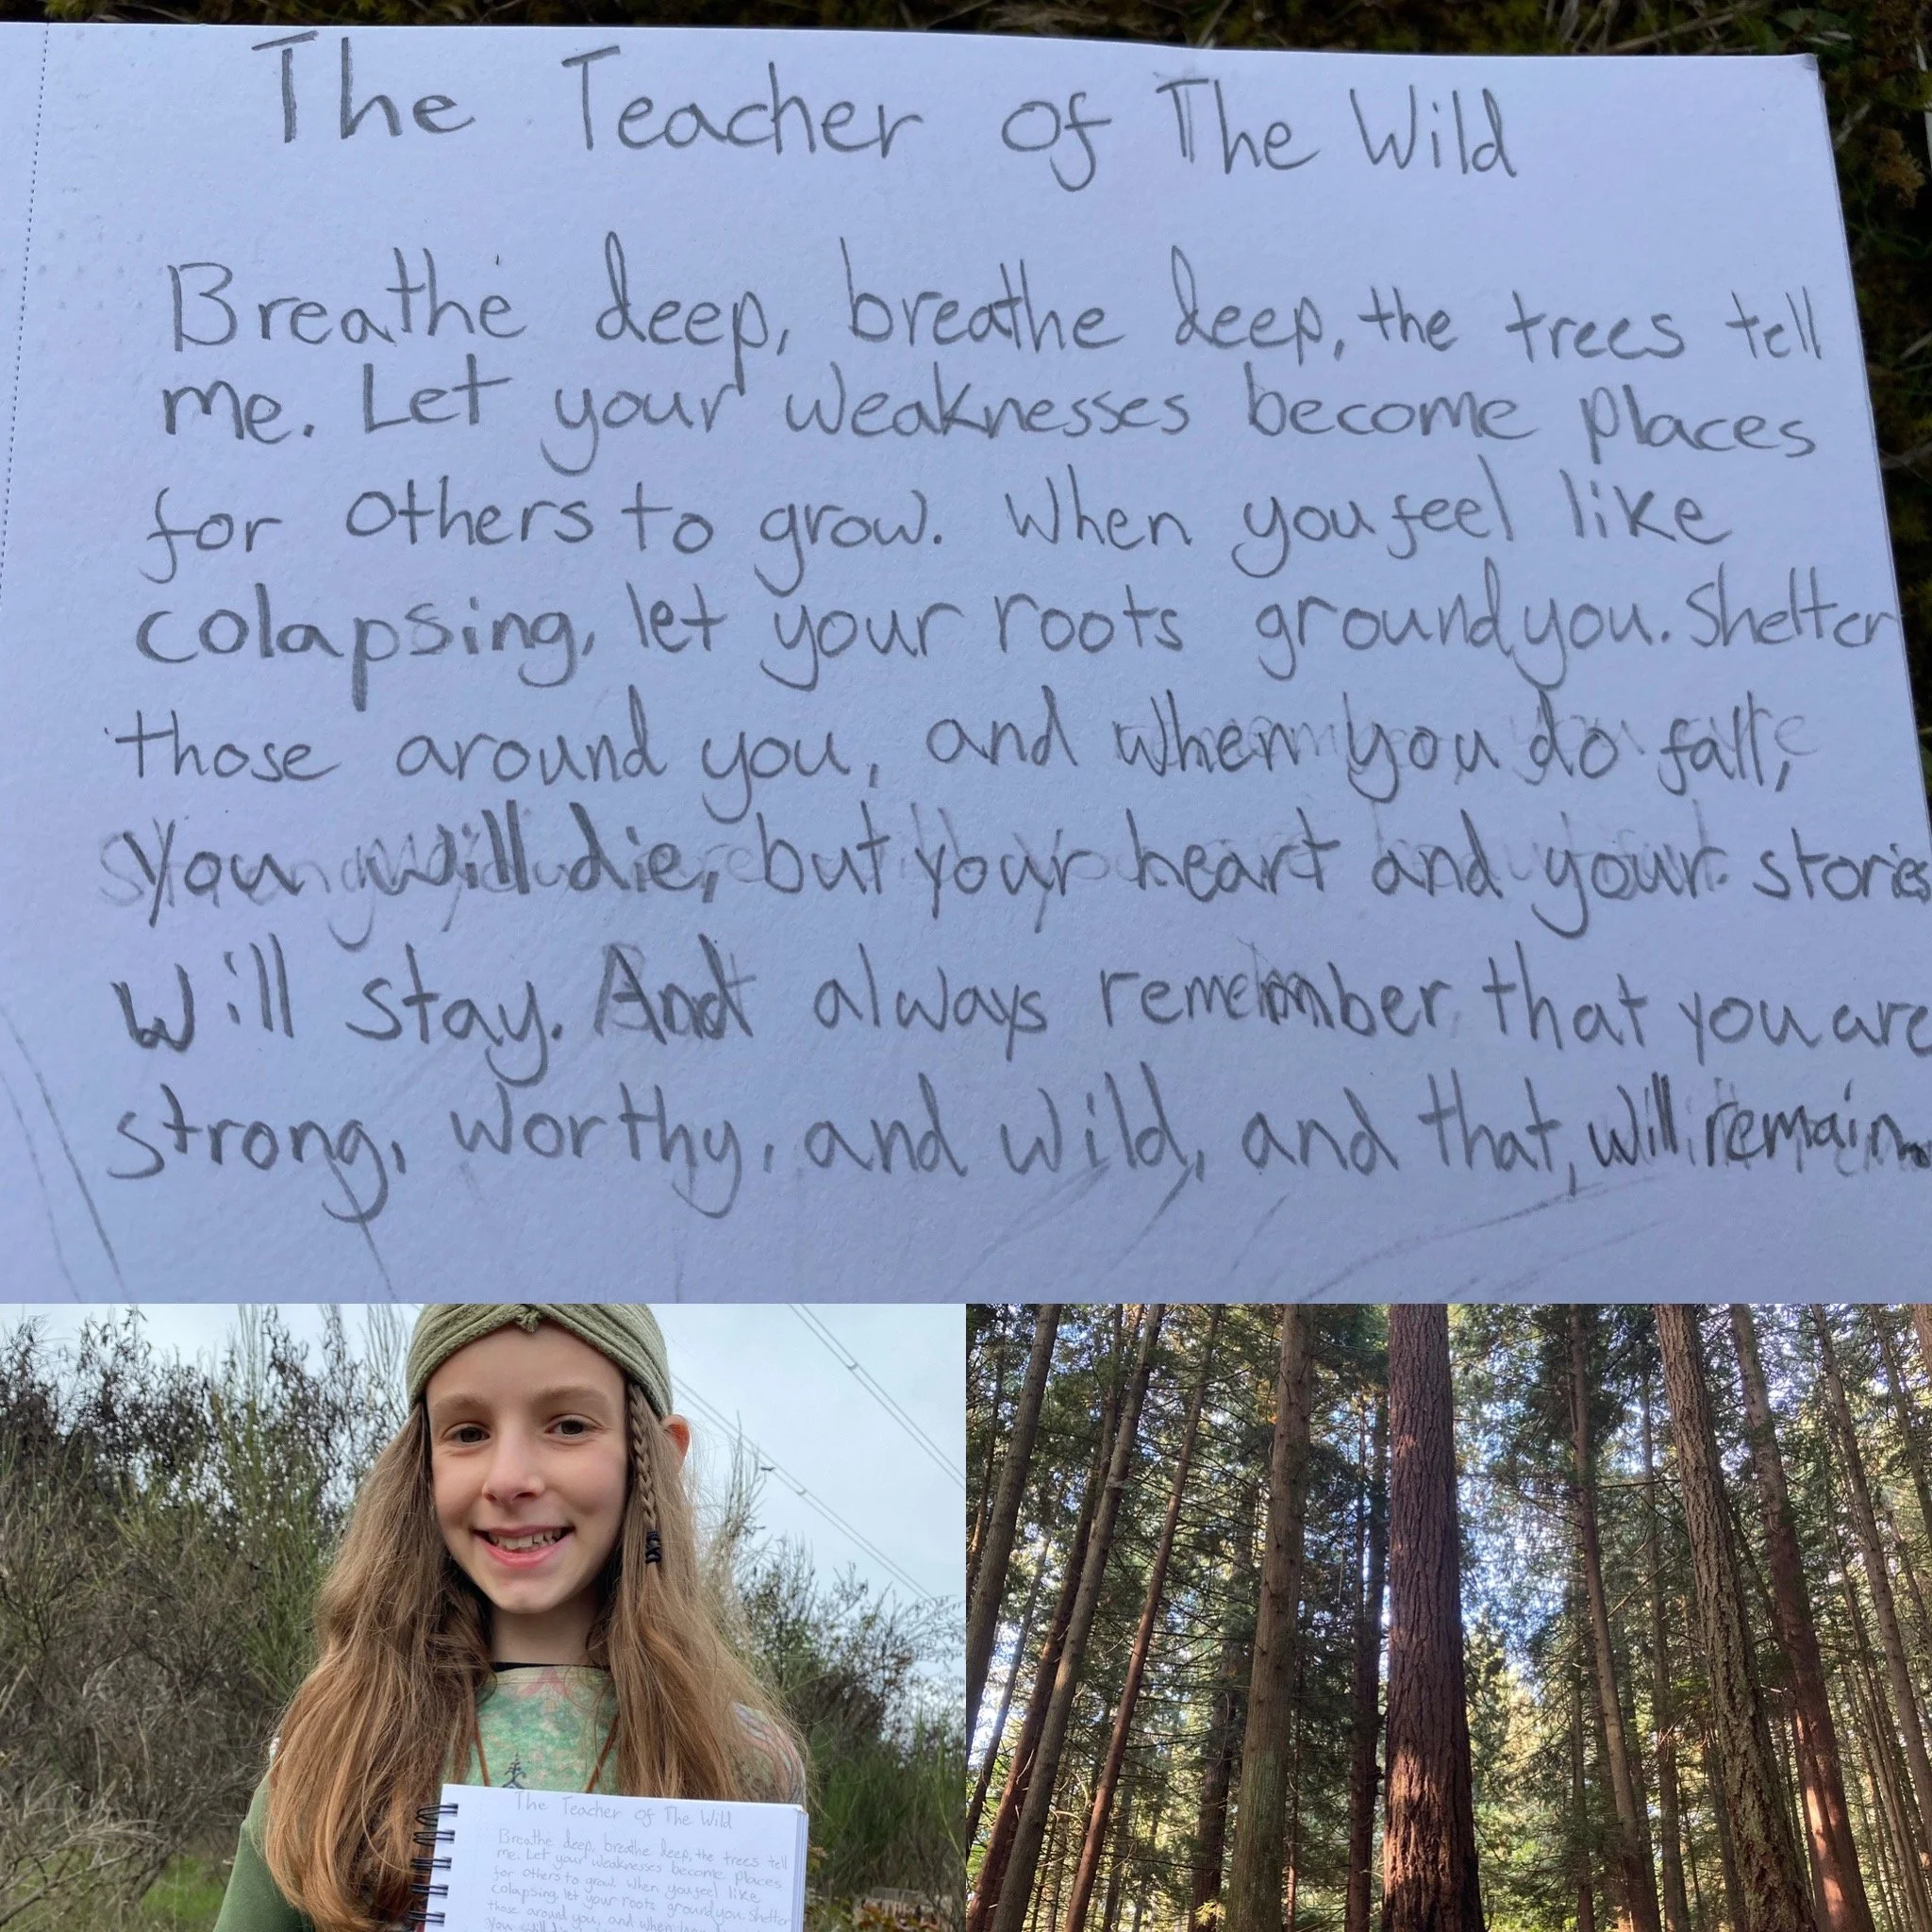 The Teacher of The Wild
Breathe deep, breathe deep, the trees tell
me. Let your weaknesses become places
for others to grow. When you feel like
colapsing, let your roots ground you. Shelter
those around you, and when you do fall,
you will die, but your heart and your stories
will stay. And always remember that you are
strong, worthy, and wild, and that, will remain.
The Teacher of The Wild
Breathe deep, breathe deep, the trees tell
me. Let your weaknesses become places
for others to grow. When you feel like
colapsing, let your roots ground you. Shelter
those around you, and when you
you will die